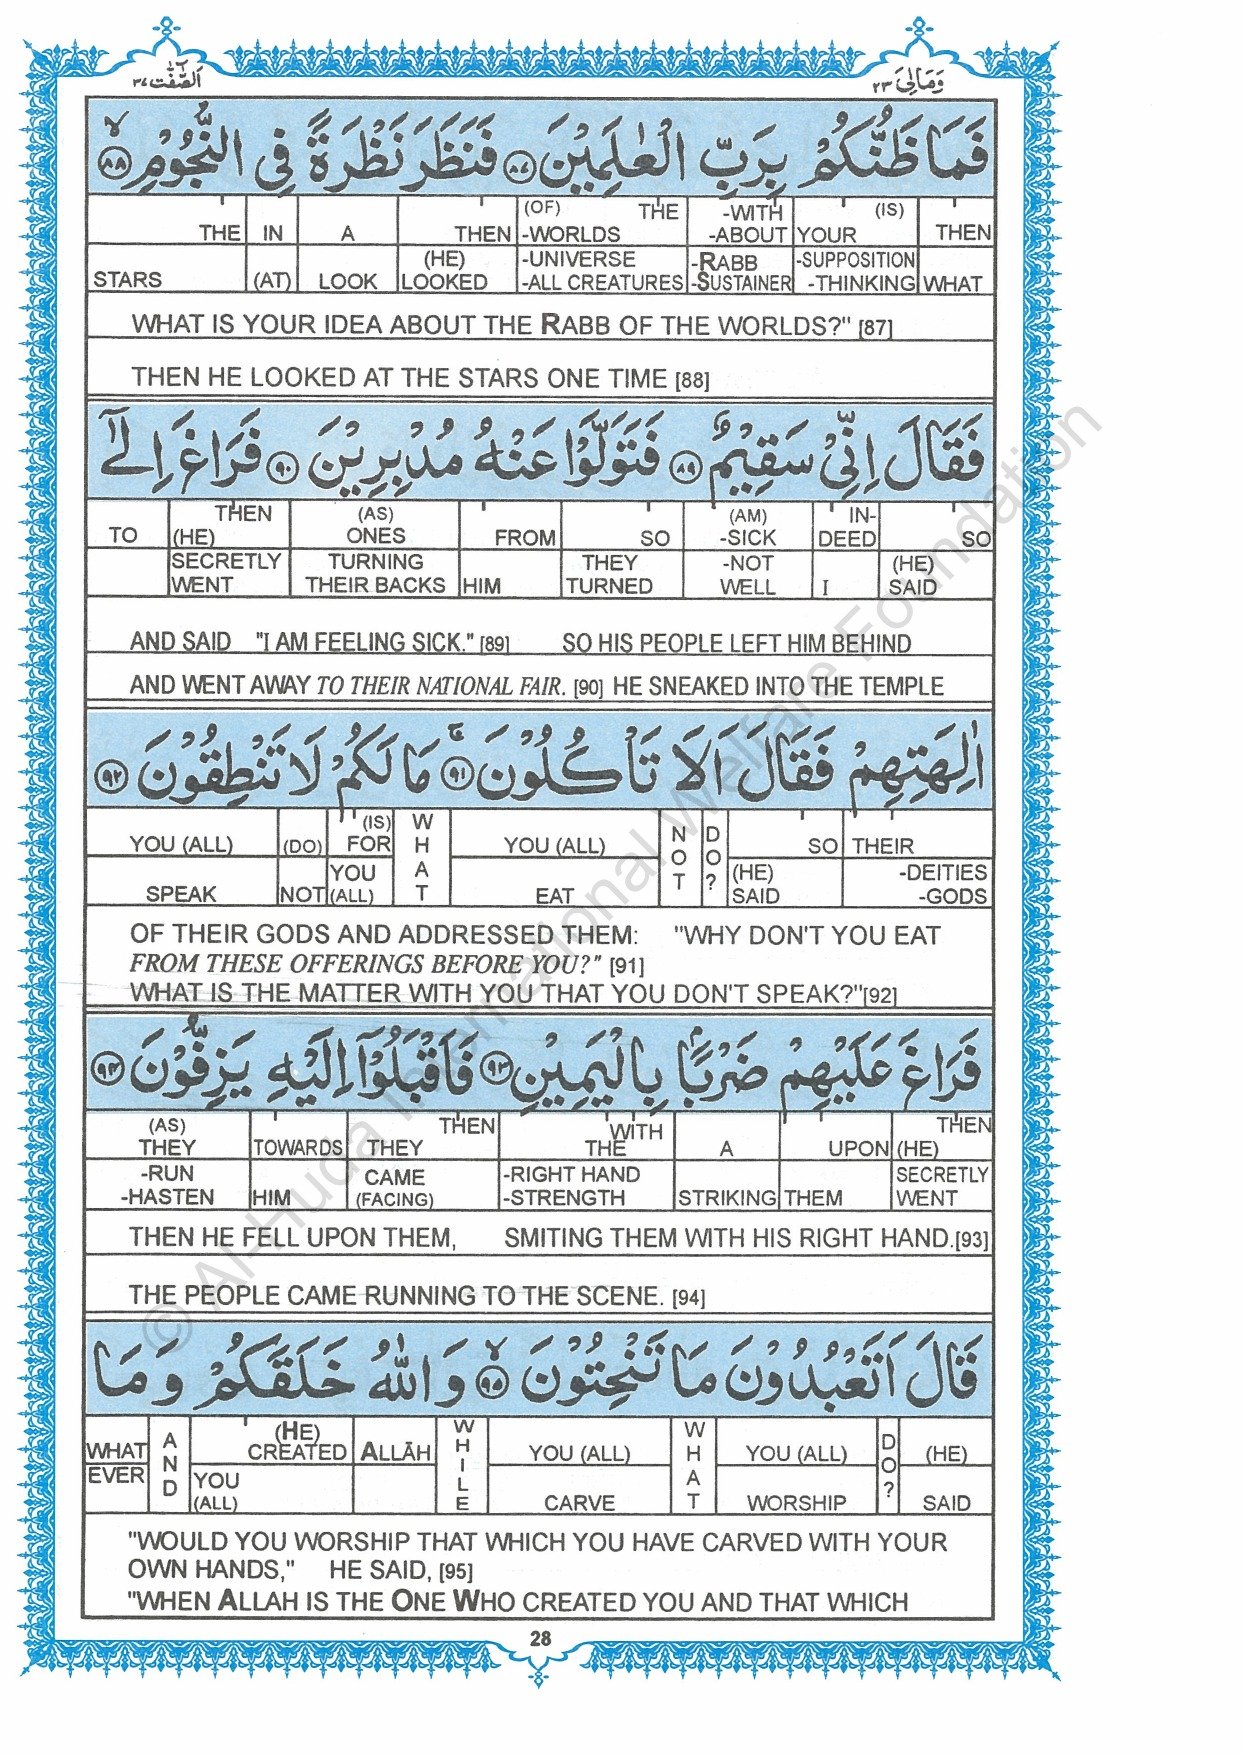 اَلصّٰٓفّٰت ٣٧
وَمَالِىَ ٢٣
فَمَا ظَنُّكُمْ بِرَبِّ الْعٰلَمِيْنَ ٨٧ فَنَظَرَ نَظْرَةً فِى النُّجُوْمِ ٨٨
THE IN A THEN (OF) THE -WORLDS -WITH -ABOUT (IS) YOUR THEN
STARS (AT) LOOK (HE) LOOKED -UNIVERSE -ALL CREATURES -RABB -SUSTAINER -SUPPOSITION -THINKING WHAT
WHAT IS YOUR IDEA ABOUT THE RABB OF THE WORLDS?" [87]
THEN HE LOOKED AT THE STARS ONE TIME [88]
فَقَالَ اِنِّىْ سَقِيْمٌ ٨٩ فَتَوَلَّوْا عَنْهُ مُدْبِرِيْنَ ٩٠ فَرَاغَ اِلٰٓى
TO THEN (HE) (AS) ONES FROM SO (AM) -SICK IN- DEED SO
SECRETLY WENT TURNING THEIR BACKS HIM THEY TURNED -NOT WELL I (HE) SAID
AND SAID "I AM FEELING SICK." [89] SO HIS PEOPLE LEFT HIM BEHIND
AND WENT AWAY TO THEIR NATIONAL FAIR. [90] HE SNEAKED INTO THE TEMPLE
اٰلِهَتِهِمْ فَقَالَ اَلَا تَاْكُلُوْنَ ٩١ مَا لَكُمْ لَا تَنْطِقُوْنَ ٩٢
YOU (ALL) (DO) (IS) FOR WHAT YOU (ALL) NOT DO? SO THEIR
SPEAK NOT YOU (ALL) EAT (HE) SAID -DEITIES -GODS
OF THEIR GODS AND ADDRESSED THEM: "WHY DON'T YOU EAT
FROM THESE OFFERINGS BEFORE YOU?" [91]
WHAT IS THE MATTER WITH YOU THAT YOU DON'T SPEAK?"[92]
فَرَاغَ عَلَيْهِمْ ضَرْبًۢا بِالْيَمِيْنِ ٩٣ فَاَقْبَلُوْٓا اِلَيْهِ يَزِفُّوْنَ ٩٤
(AS) THEY TOWARDS THEN THEY WITH THE A UPON THEN (HE)
-RUN -HASTEN HIM CAME (FACING) -RIGHT HAND -STRENGTH STRIKING THEM SECRETLY WENT
THEN HE FELL UPON THEM, SMITING THEM WITH HIS RIGHT HAND.[93]
THE PEOPLE CAME RUNNING TO THE SCENE. [94]
قَالَ اَتَعْبُدُوْنَ مَا تَنْحِتُوْنَ ٩٥ وَاللّٰهُ خَلَقَكُمْ وَمَا
WHAT AND (HE) CREATED ALLĀH WHILE YOU (ALL) WHAT YOU (ALL) DO? (HE)
EVER YOU (ALL) CARVE WORSHIP SAID
"WOULD YOU WORSHIP THAT WHICH YOU HAVE CARVED WITH YOUR
OWN HANDS," HE SAID, [95]
"WHEN ALLAH IS THE ONE WHO CREATED YOU AND THAT WHICH
28
© Al-Huda International Welfare Foundation